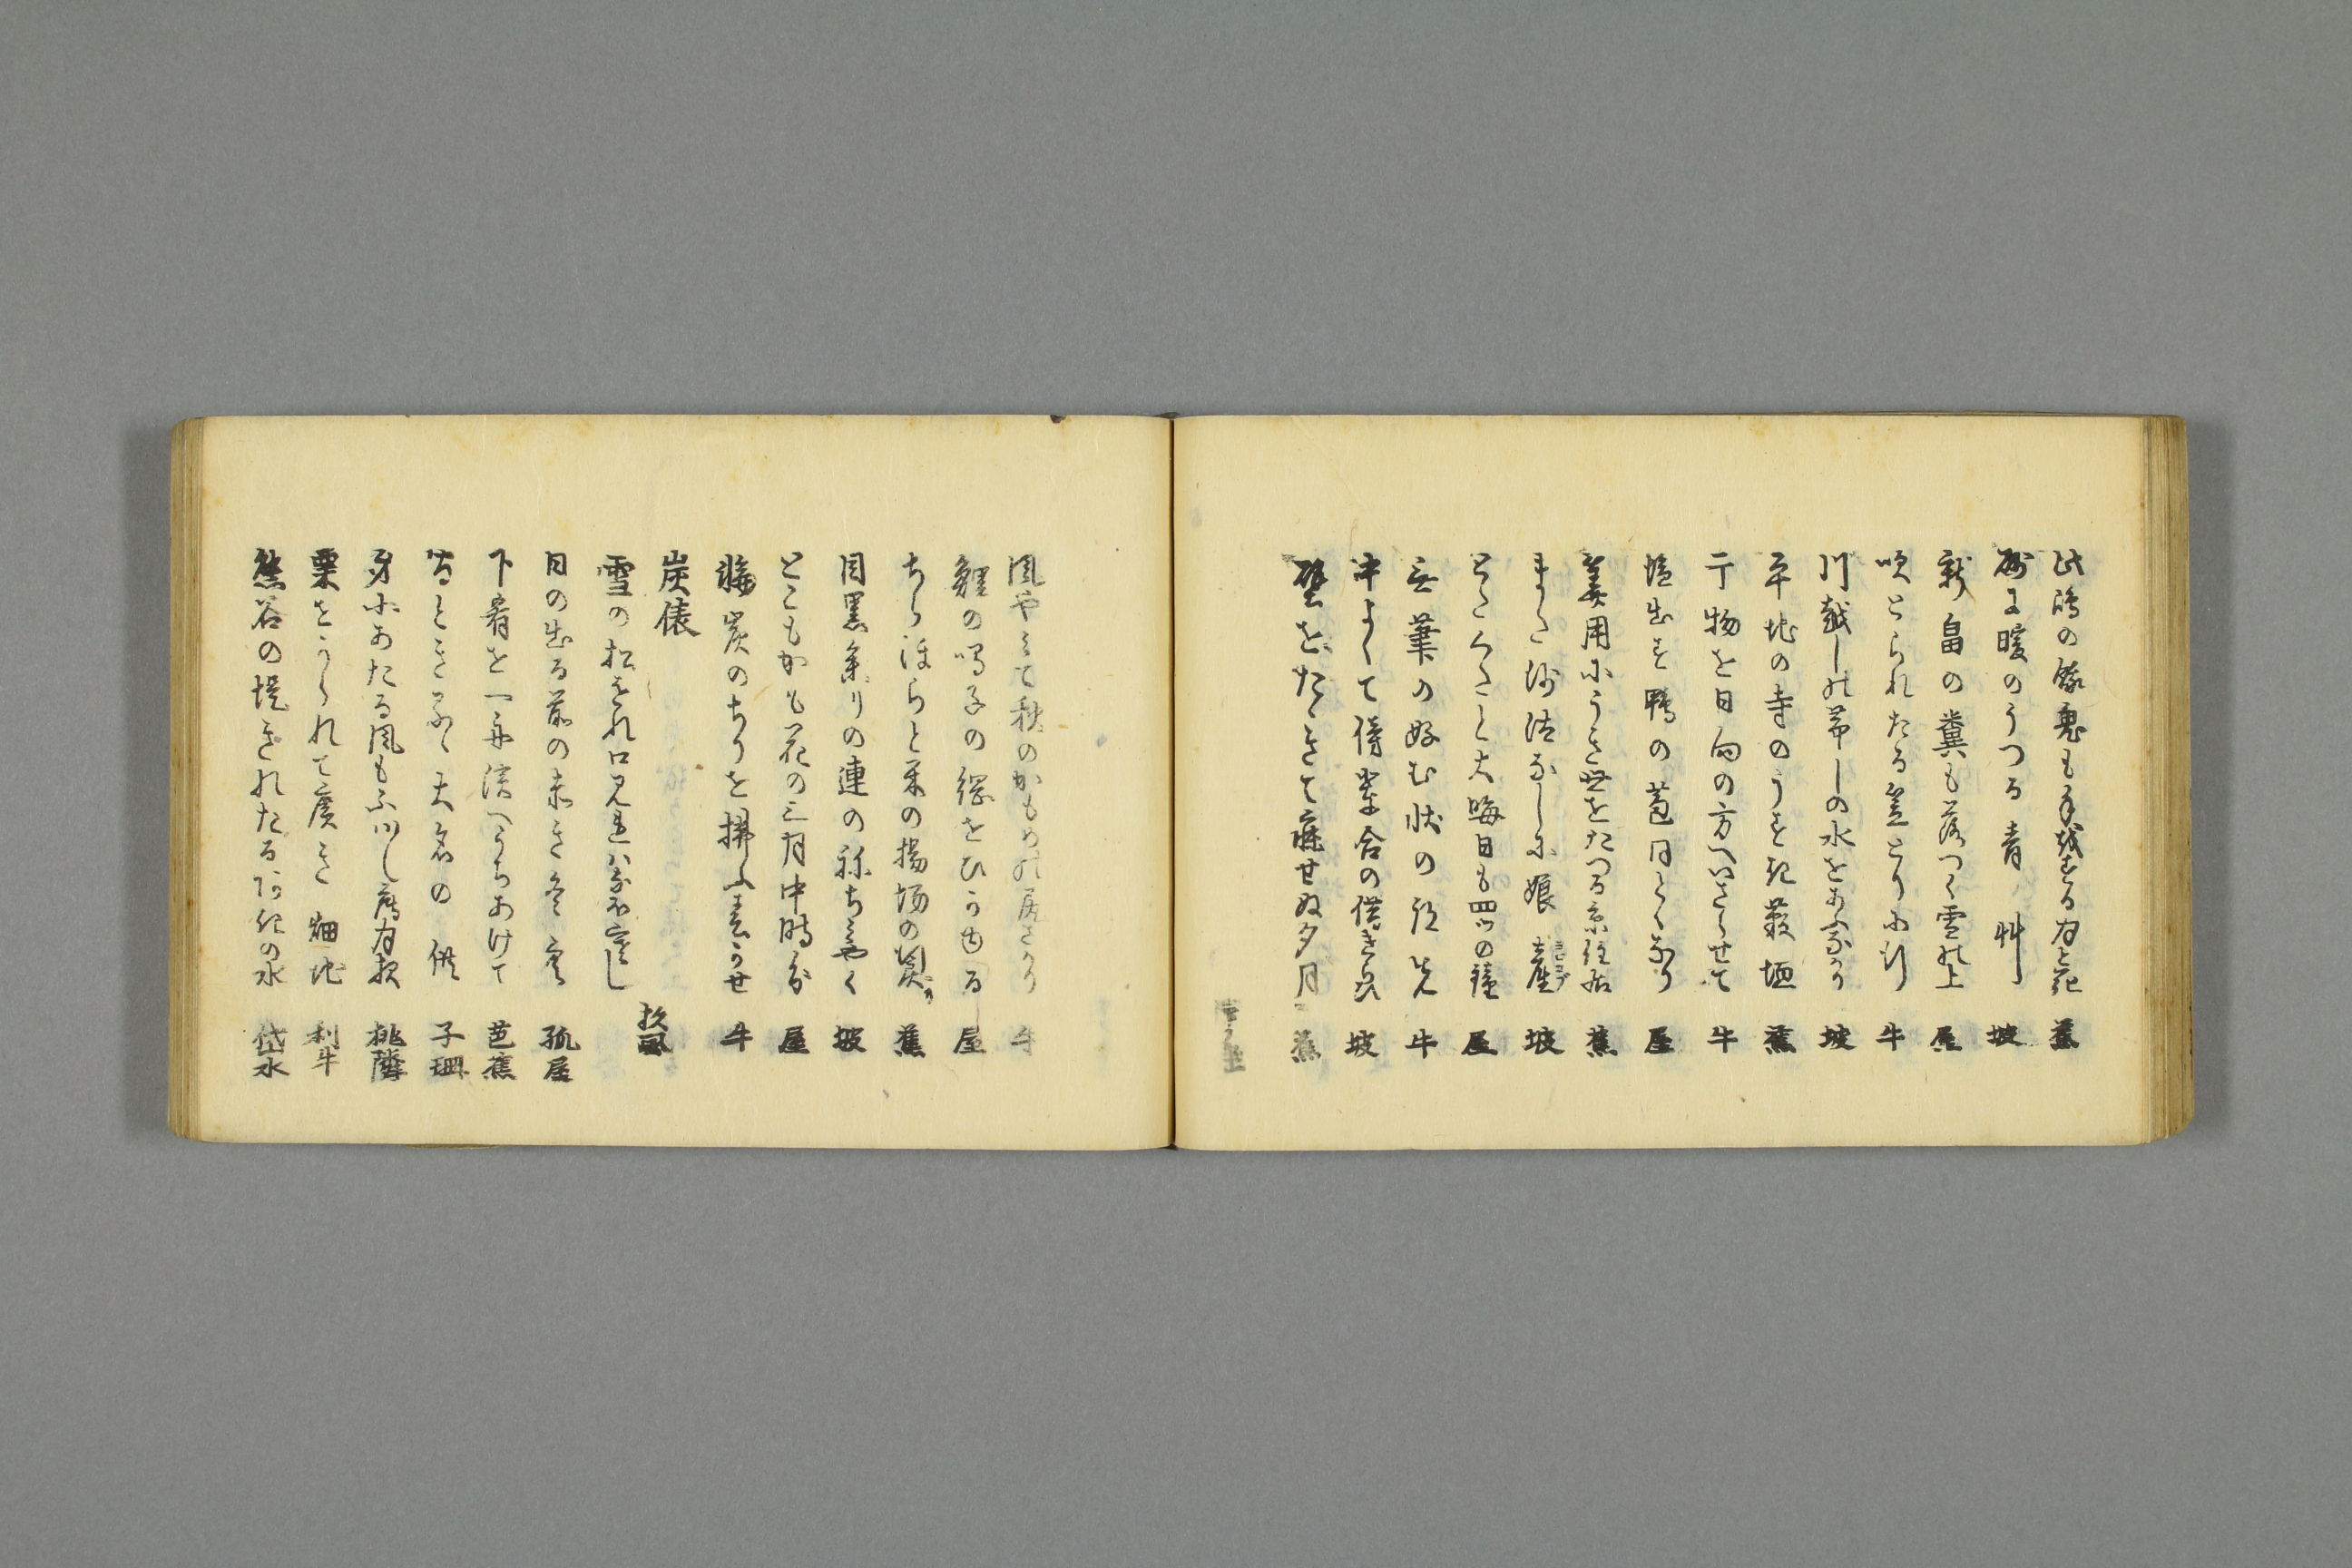 此嶋の餓鬼も手を摺る月と花 蕉
砂に暖のうつる青艸 坡
新畠の糞も落つく雪の上 屋
吹とられたる笠とりに行 牛
川越しの帯しの水をあふなかり 坡
平地の寺のうすき薮垣 蕉
干物を日向の方へいさらせて 牛
塩出す鴨の苞ほとくなり 屋
算用にうき世をたつる京住居 蕉
またさ沙汰なしに娘産ヨロコブ 坡
とたくたと大晦日も四ツの鐘 屋
無筆の好む状の跡先 牛
中よくて傍輩合の借りいらひ 坡
壁をたゝきて寐せぬ夕月 蕉
風やみて秋のかもめの尻さかり 牛
鯉の鳴子の綱をひかゆる 屋
ちらほらと米の揚場の行戻り 蕉
目黒参りの連のねちみやく 坡
とこもかも花の三月中時分 屋
輪炭のちりを拂ふ春かせ 牛
炭俵
雪の松をれ口見れは尚寒し 杉風
日の出る前の赤き冬空 孤屋
下肴を一舟浜へうちあけて 芭蕉
間とぎるゝ大名の供 子珊
身にあたる風もふハ〱薄月夜 桃隣
粟をかられて廣き畑地 利牛
熊谷の堤きれたる秋の水 岱水